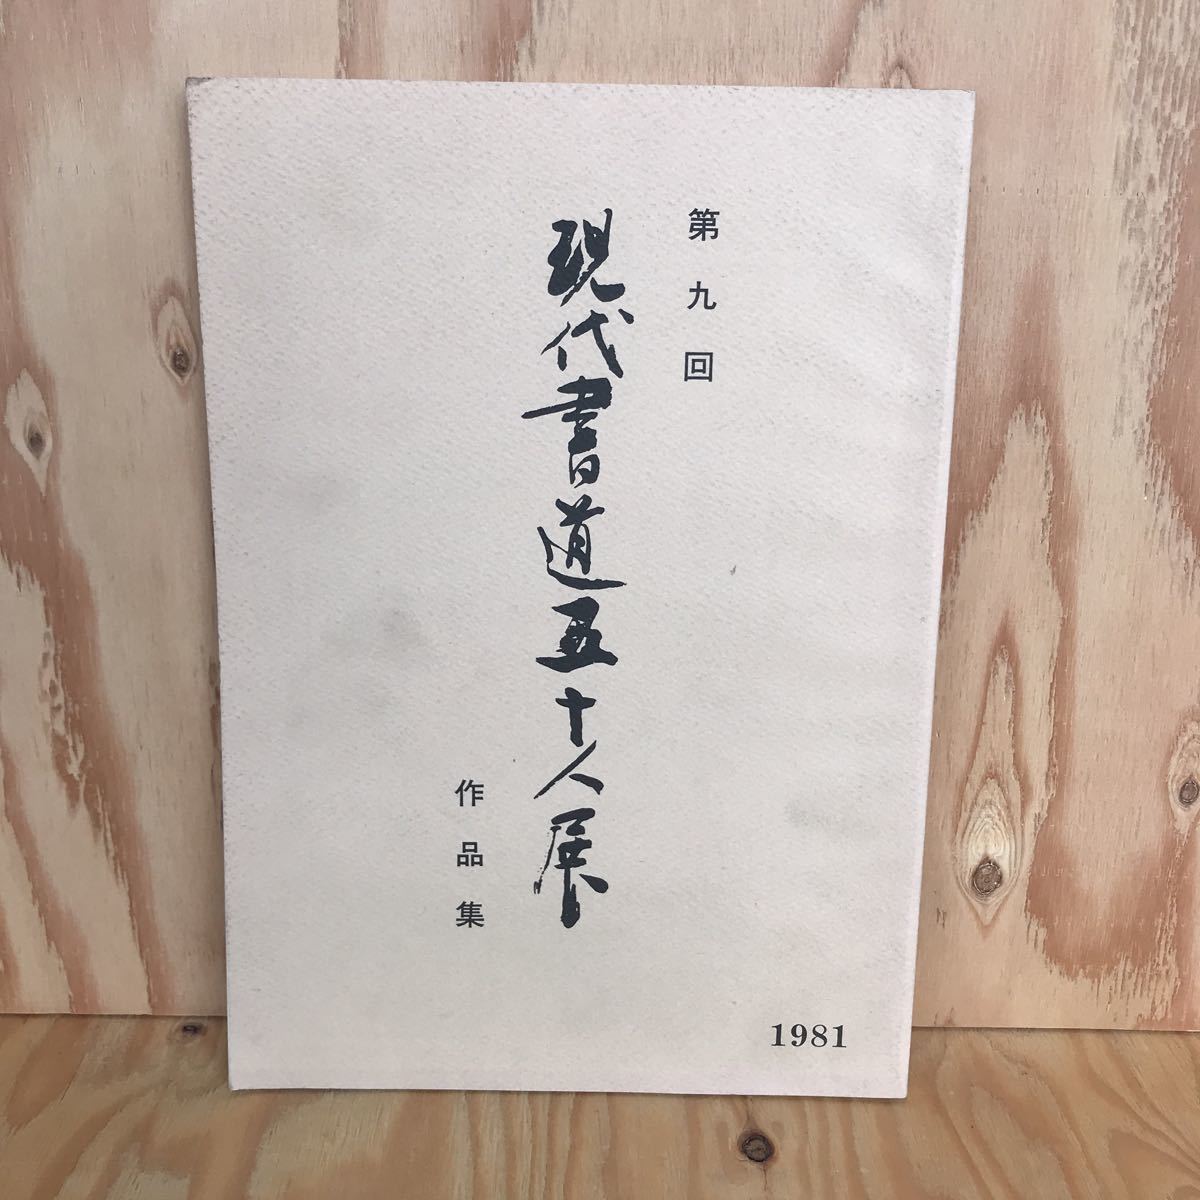 第九回
現代書道五十人展
作品集
1981